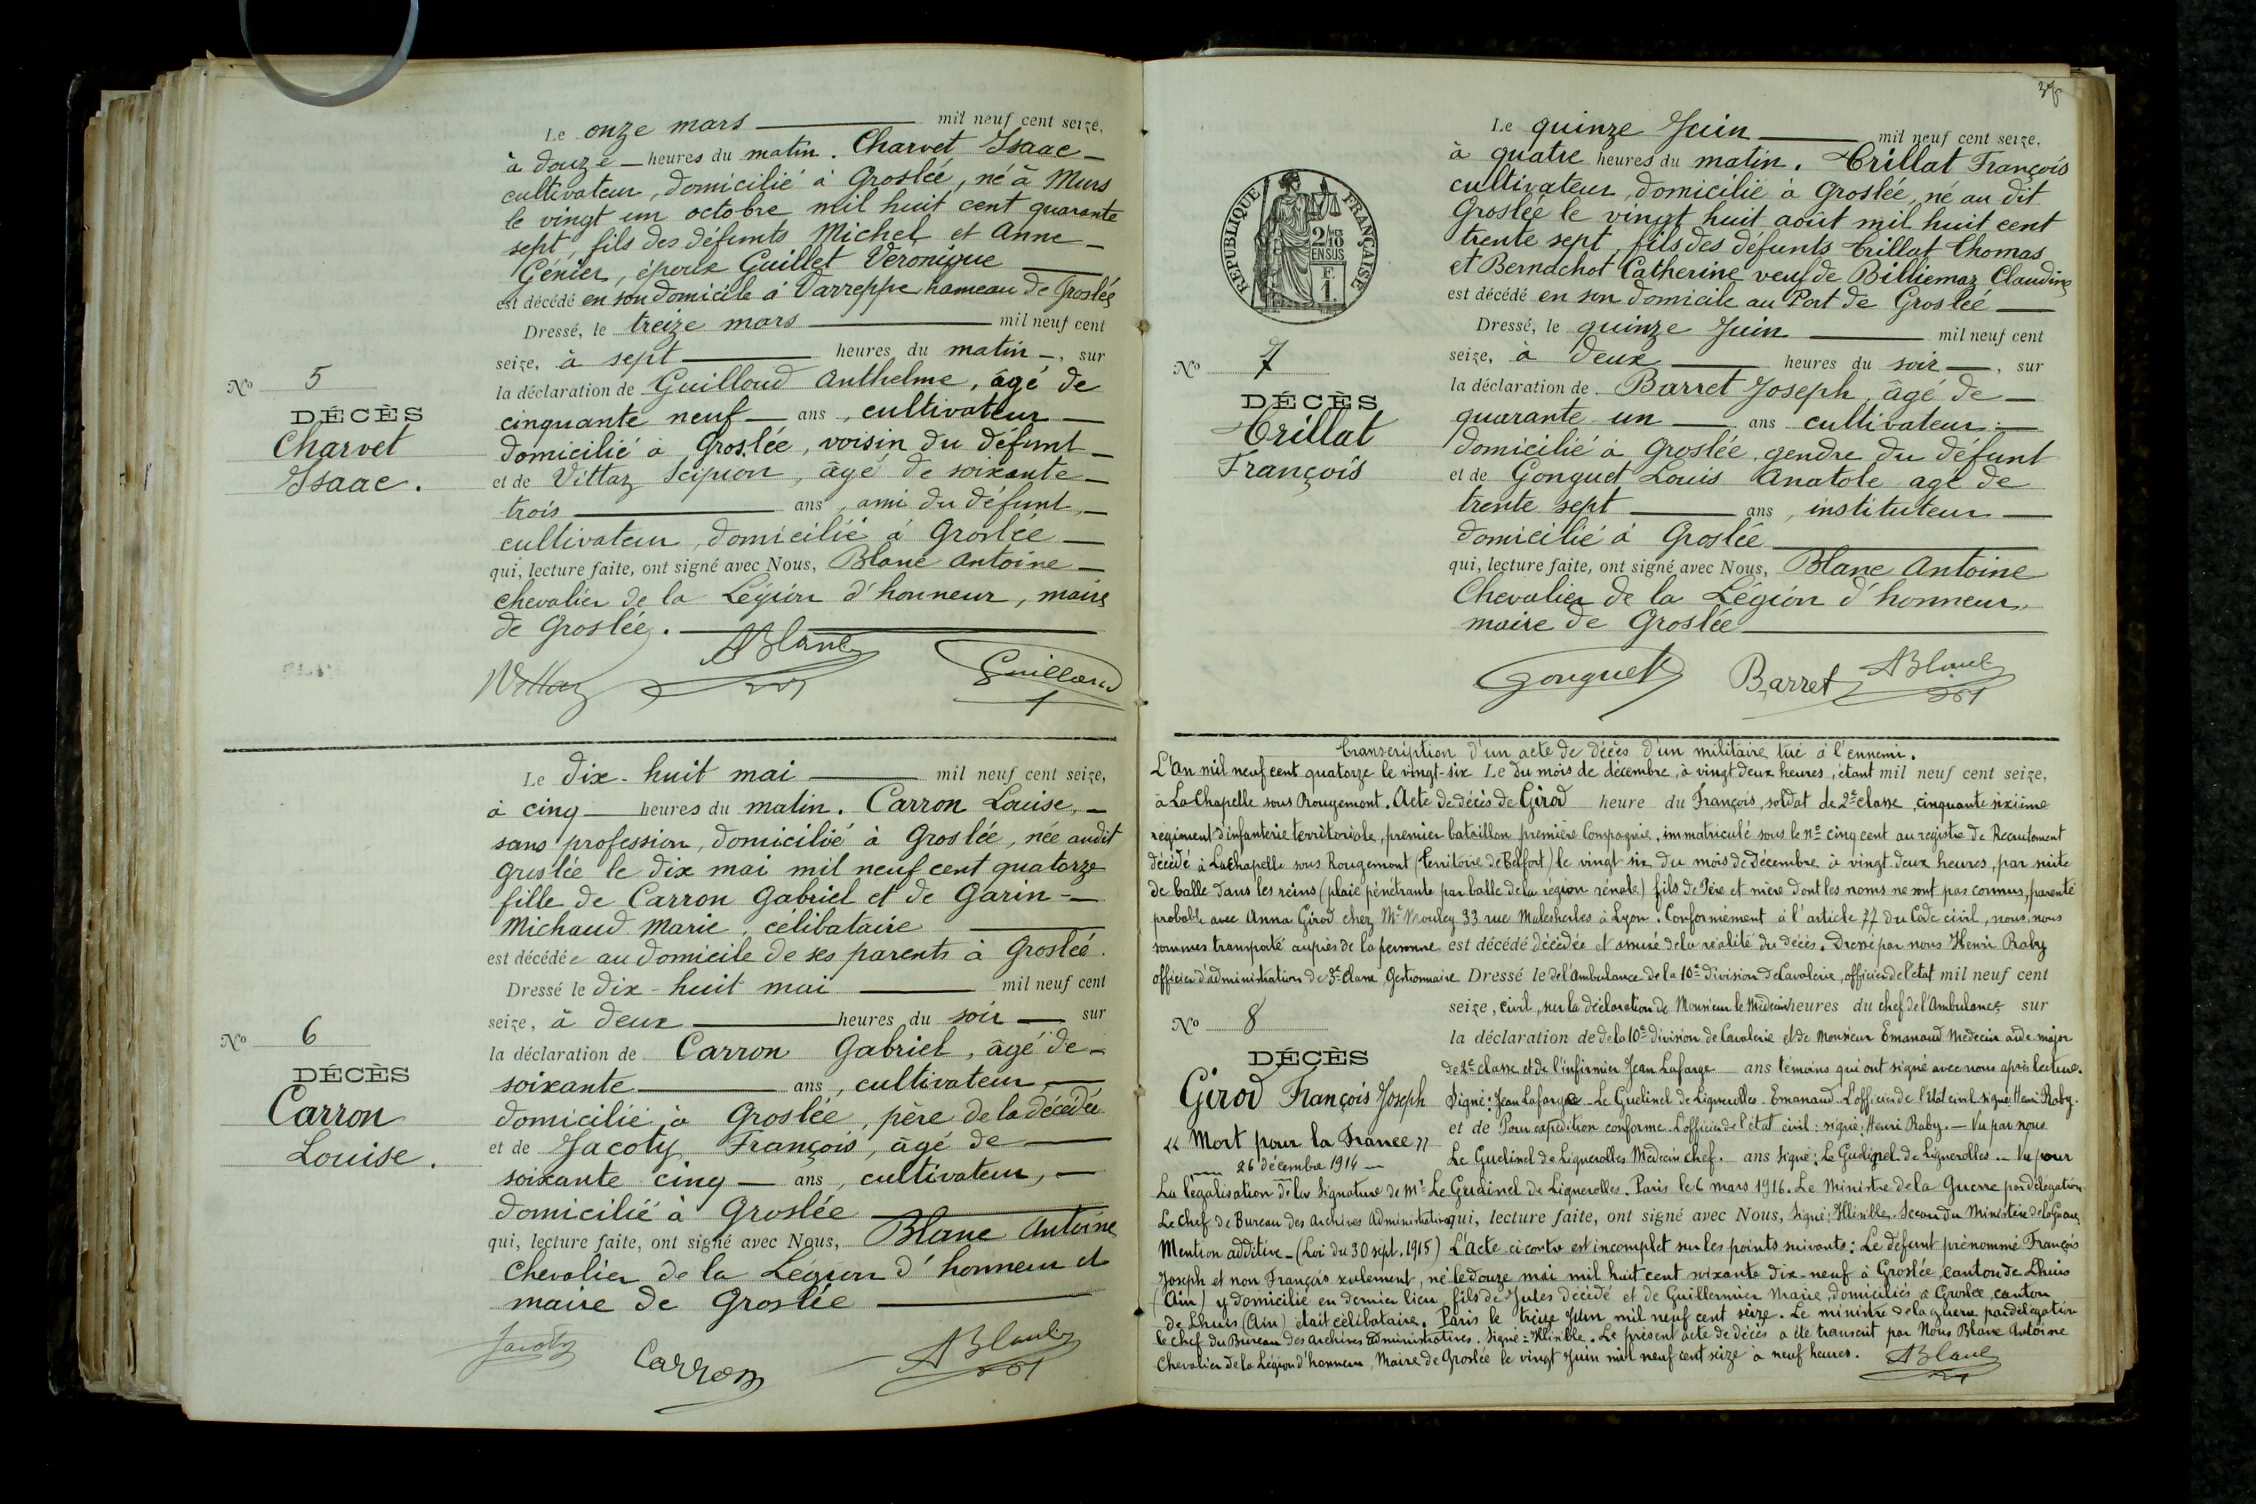 Le onze mars mil neuf cent seize,
à douze heures du matin. Charvet Isaac
cultivateur, domicilié à Groslée, né à Murs
le vingt un octobre mil huit cent quarante
sept, fils des défunts Michel et Anne
Génier, époux Guillet Véronique
est décédé en son domicile à Varreppe hameau de Groslée
Dressé, le treize mars mil neuf cent
seize, à sept heures du matin, sur
la déclaration de Guilloud Anthelme, âgé de
cinquante neuf ans, cultivateur
domicilié à Groslée, voisin du défunt
et de Vittaz Scipion, âgé de soixante
trois ans, ami du défunt,
cultivateur, domicilié à Groslée
qui, lecture faite, ont signé avec Nous, Blanc Antoine
chevalier de la Légion d'honneur, maire
de Groslée.
Vittaz ABlanc Guilloud
No 5
DÉCÈS
Charvet
Isaac.
Le dix-huit mai mil neuf cent seize,
à cinq heures du matin. Carron Louise,
sans profession, domicilié à Groslée, née audit
Groslée le dix mai mil neuf cent quatorze
fille de Carron Gabriel et de Garin-
Michaud Marie, célibataire
est décédée au domicile de ses parents à Groslée.
Dressé le dix-huit mai mil neuf cent
seize, à deux heures du soir sur
la déclaration de Carron Gabriel, âgé de
soixante ans, cultivateur,
domicilié à Groslée, père de la décédée
et de Jacoty François, âgé de
soixante cinq ans, cultivateur,
domicilié à Groslée
qui, lecture faite, ont signé avec Nous, Blanc Antoine
Chevalier de la Légion d'honneur et
maire de Groslée
Jacoty Carron ABlanc
No 6
DÉCÈS
Carron
Louise.
RÉPUBLIQUE FRANÇAISE
2/10
EN SUS
F.
1.
Le quinze Juin mil neuf cent seize,
à quatre heures du matin. Trillat François
cultivateur, domicilié à Groslée, né au dit
Groslée le vingt huit août mil huit cent
trente sept, fils des défunts Trillat Thomas
et Bernachot Catherine veuf de Billiemaz Claudine
est décédé en son domicile au Port de Groslée
Dressé, le quinze Juin mil neuf cent
seize, à deux heures du soir, sur
la déclaration de Barret Joseph, âgé de
quarante un ans cultivateur
domicilié à Groslée, gendre du défunt
et de Gonguet Louis Anatole agé de
trente sept ans, instituteur
domicilié à Groslée
qui, lecture faite, ont signé avec Nous, Blanc Antoine
Chevalier de la Légion d'honneur,
maire de Groslée
Gonguet Barret ABlanc
No 7
DÉCÈS
Trillat
François
Transcription d'un acte de décès d'un militaire tué à l'ennemi.
L'An mil neuf cent quatorze le vingt-six Le du mois de décembre, à vingt deux heures, étant mil neuf cent seize,
à La Chapelle sous Rougemont. Acte de décès de Girod heure du François, soldat de 2e classe, cinquante sixième
régiment d'infanterie territoriale, premier bataillon première Compagnie, immatriculé sous le no cinq cent au registre de Recrutement
décédé à La Chapelle sous Rougemont (Territoire de Belfort) le vingt six du mois de décembre à vingt deux heures, par suite
de balle dans les reins (plaie pénétrante par balle de la région rénale) fils de Père et mère dont les noms ne sont pas connus, parenté
probable avec Anna Girod chez Mr Mouley 33 rue Malesherbes à Lyon. Conformément à l'article 77 du Code civil, nous nous
sommes transporté auprès de la personne est décédé décédée et assuré de la réalité du décès. Dressé par nous Henri Raby
officier d'administration de 3e classe Gestionnaire Dressé le de l'Ambulance de la 10e division de Cavalerie, officier de l'état mil neuf cent
seize, civil, sur la déclaration de Monsieur le Médecin heures du chef de l'Ambulance sur
la déclaration de de la 10e division de Cavalerie et de Monsieur Emanaud Médecin aide major
de 2e classe et de l'infirmier Jean Lafarge ans témoins qui ont signé avec nous après lecture.
Signé: Jean Lafarge Le Guelinel de Lignerolles. Emanaud. L'officier de l'état civil signé Henri Raby.
et de Pour expédition conforme. L'officier de l'état civil: signé: Henri Raby. — Vu par nous
Le Guelinel de Lignerolles Médecin chef. ans Signé: Le Guelinel de Lignerolles. — Vu pour
La légalisation de la Signature de Mr Le Guelinel de Lignerolles. Paris le 6 mars 1916. Le Ministre de la Guerre par délégation
Le chef de Bureau des Archives Administratives qui, lecture faite, ont signé avec Nous, Signé: Sceau du Ministère de la Guerre
Mention additive — (Loi du 30 sept. 1915) L'acte ci contre est incomplet sur les points suivants: Le défunt prénommé François
Joseph et non François seulement, né le douze mai mil huit cent soixante dix-neuf à Groslée, canton de Lhuis
(Ain) y domicilié en dernier lieu, fils de Jules décédé et de Guillermier Marie, domiciliés à Groslée, canton
de Lhuis (Ain) était célibataire. Paris le treize Juin mil neuf cent seize. Le ministre de la guerre par délégation
le chef du Bureau des archives administratives. Signé: Le présent acte de décès a été transcrit par Nous Blanc Antoine
Chevalier de la Légion d'honneur, Maire de Groslée le vingt Juin mil neuf cent seize à neuf heures. ABlanc
No 8
DÉCÈS
Girod François Joseph
« Mort pour la France »
26 décembre 1914